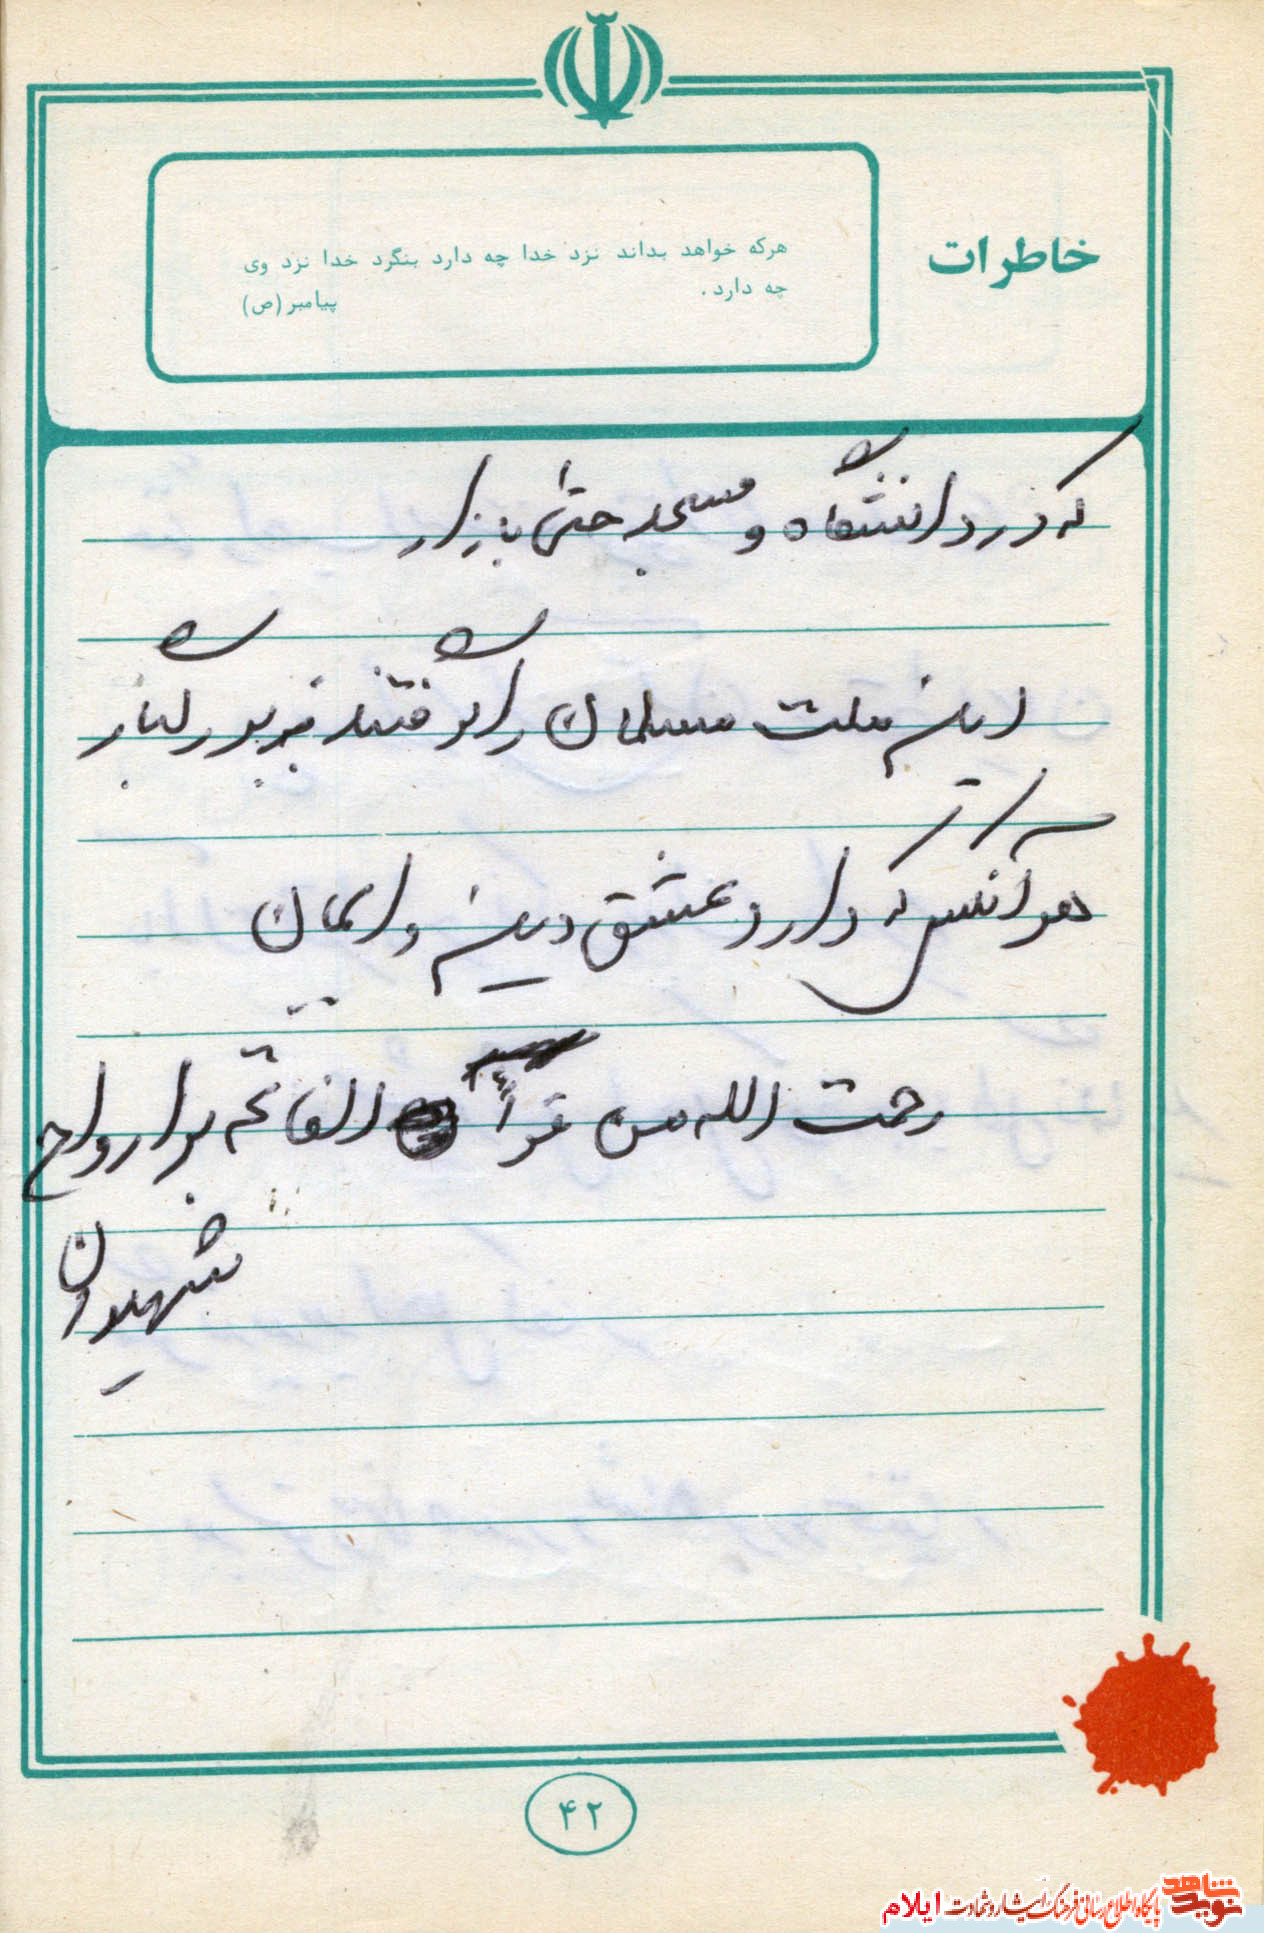 خاطرات
هرکه خواهد بداند نزد خدا چه دارد بنگرد خدا نزد وی
چه دارد.
پیامبر (ص)
که در دانشگاه و مسجد حتی بازار
این ملت مسلمان را گرفتند به رگبار
هر آنکس که دارد عشق دین و ایمان
رحمت الله من قرأ الفاتحه برا رواح
شهیدان
۴۲
نوید شاهد
پایگاه اطلاع رسانی فرهنگ ایثار و شهادت ایلام